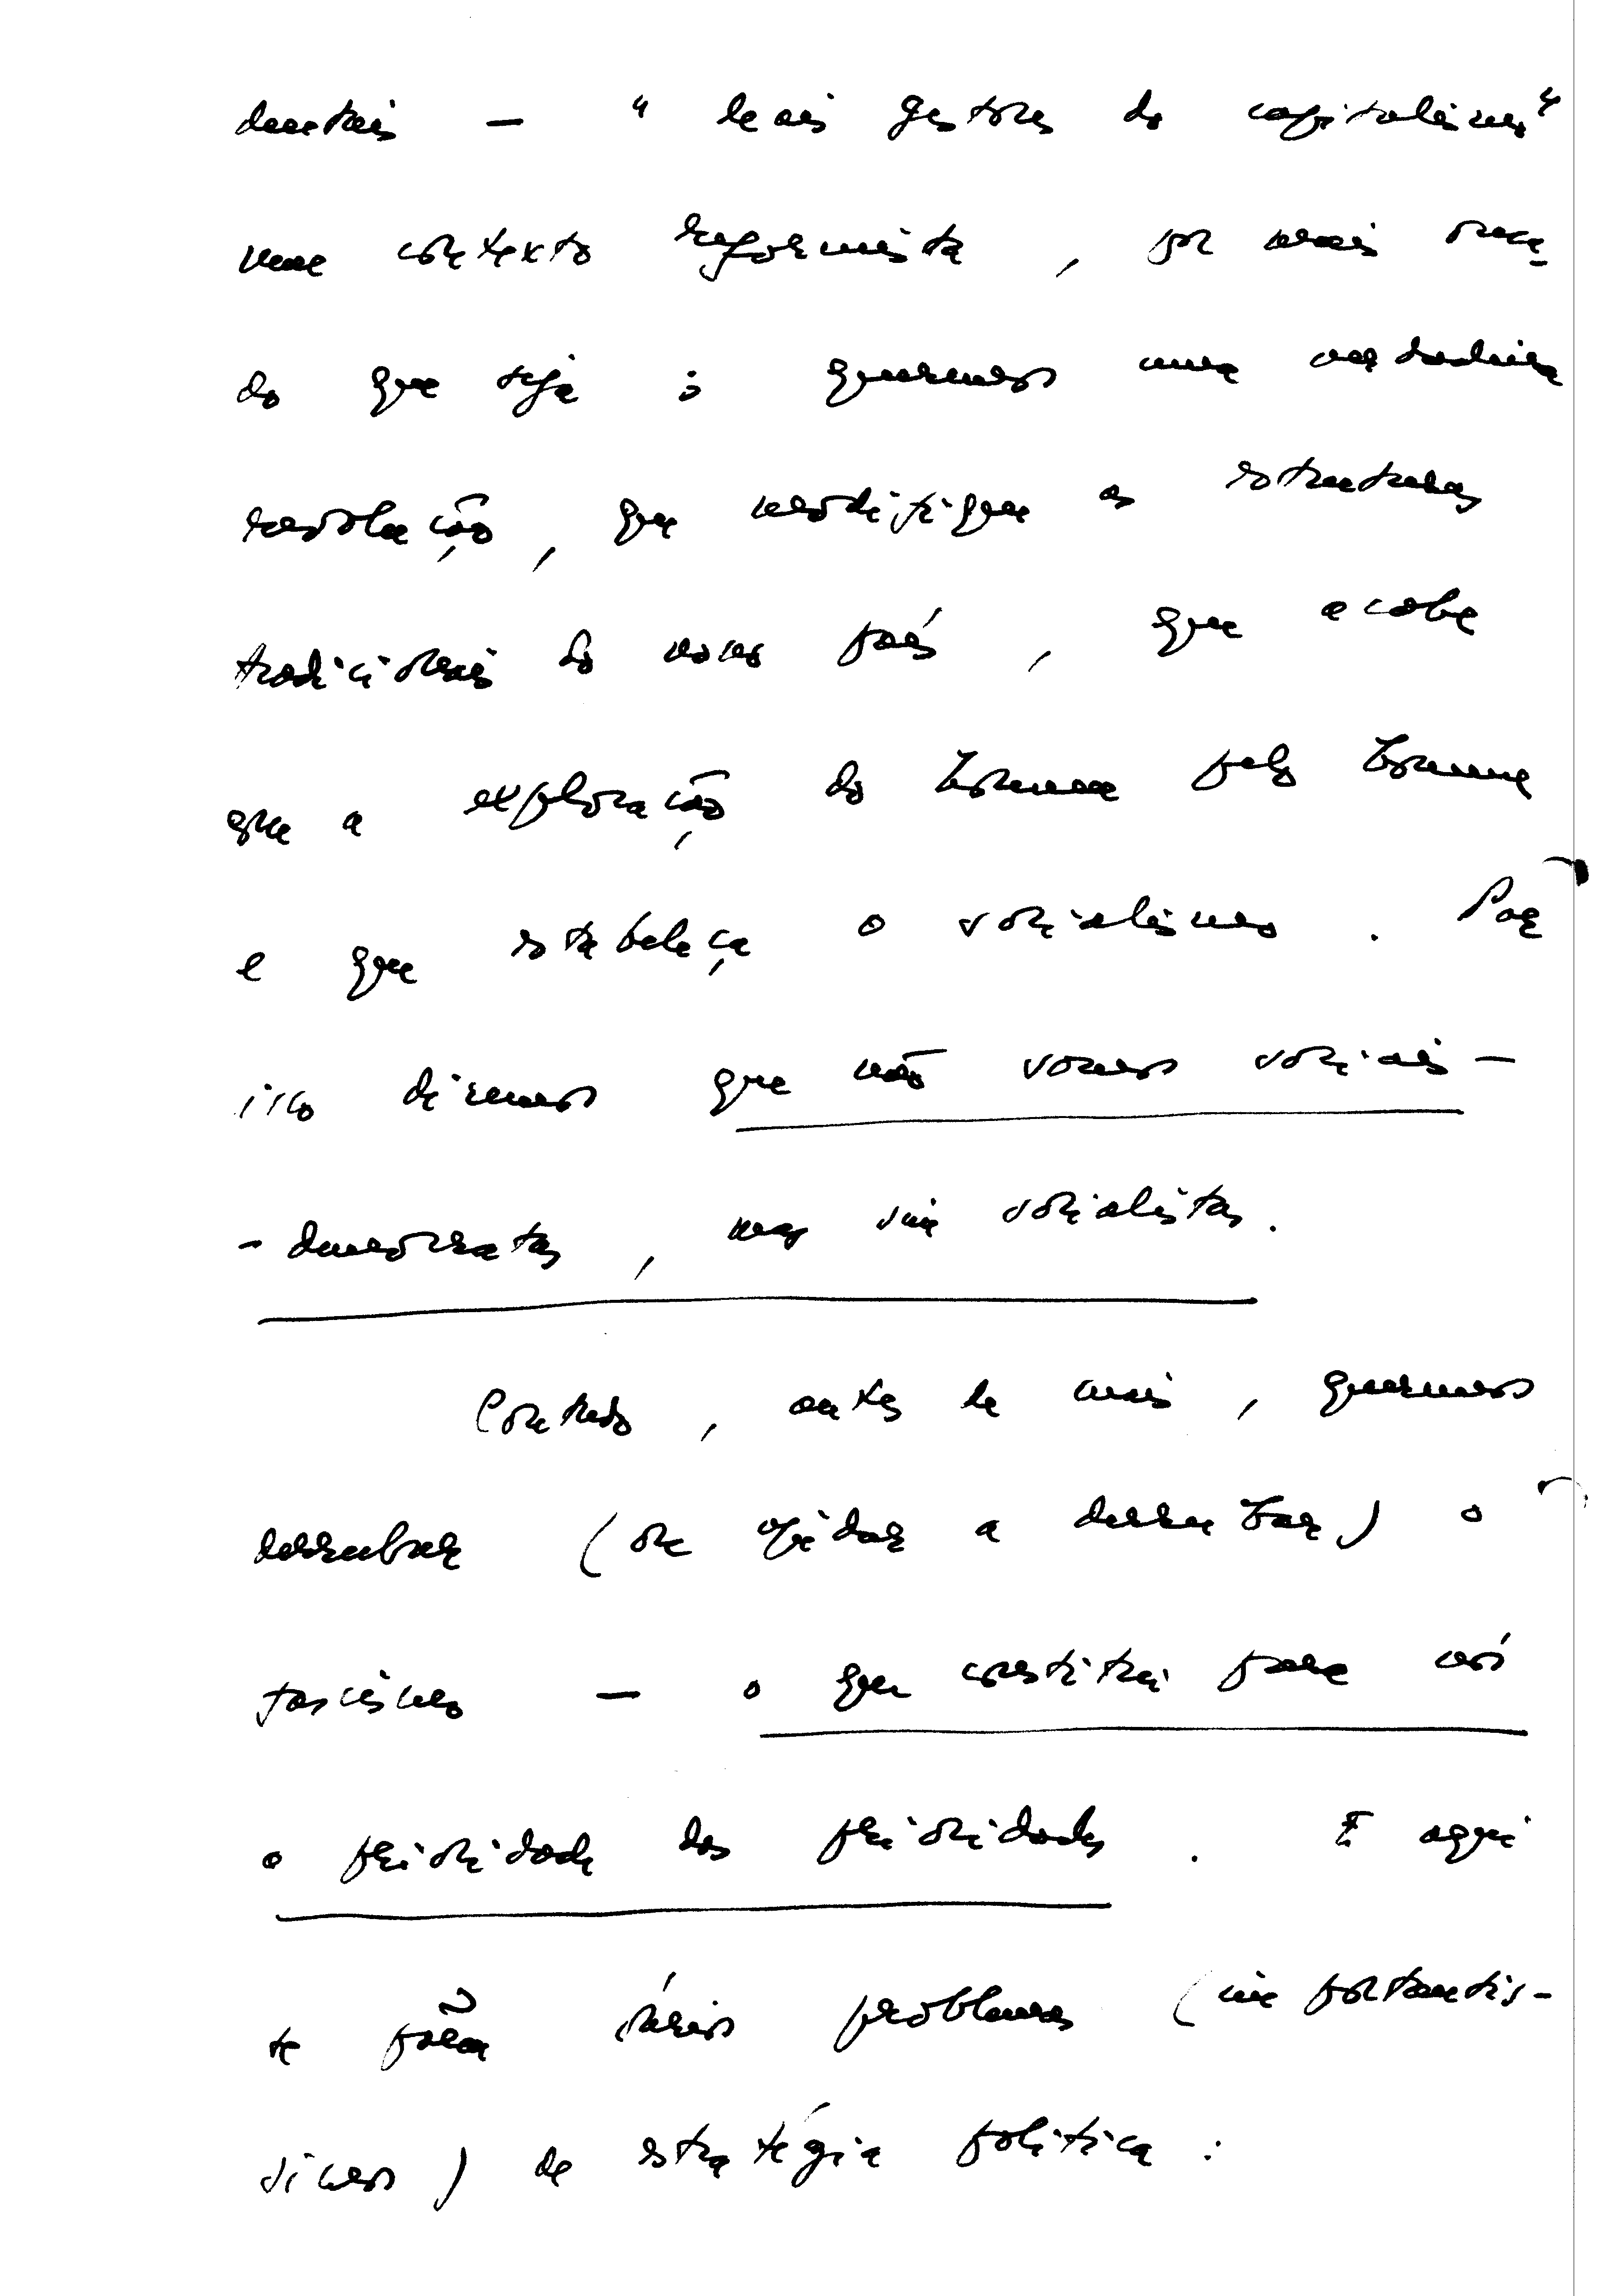 dentais — "leais gestores do capitalismo"
num contexto reformista, por mais ousa-
do que seja: queremos uma verdadeira
revolução, que modifique as estruturas
tradicionais do nosso país, que acabe
que a exploração do homem pelo homem
e que estabeleça o socialismo. Por
isso dizemos que não somos sociais-
-democratas, mas sim socialistas.
Contudo, antes de mais, queremos
derrubar (ou ajudar a derrubar) o
fascismo — o que constitui para nós
a prioridade das prioridades. E aqui
se põem vários problemas (importantís-
simos) de estratégia política: